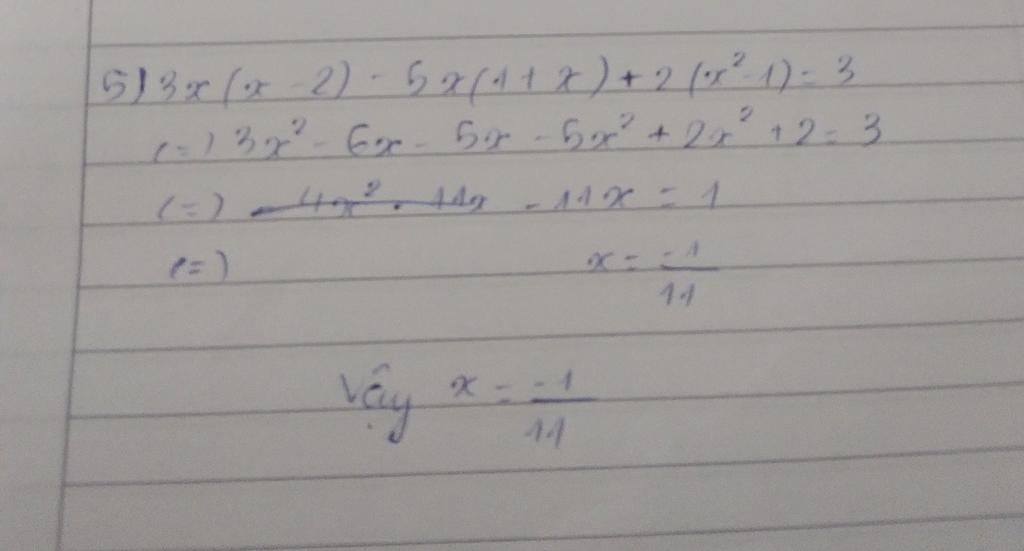 5) 3x(x - 2) - 5x(1 + x) + 2(x² - 1) = 3
(=) 3x² - 6x - 5x - 5x² + 2x² + 2 = 3
(=) - 4x² - 11x - 11x = 1
(=) x = -1/11
Vậy x = -1/11